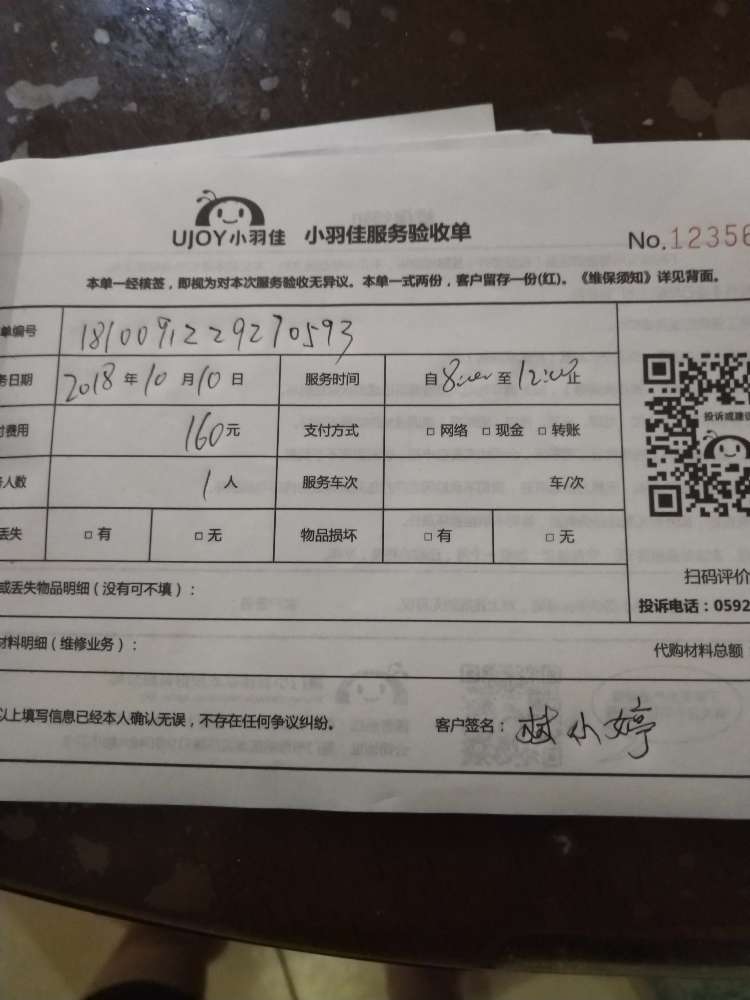 UJOY小羽佳 小羽佳服务验收单 No.12356
本单一经核签，即视为对本次服务验收无异议。本单一式两份，客户留存一份(红)。《维保须知》详见背面。
单编号 1810091229270593
务日期 2018年10月10日 服务时间 自8:00至12:00止
付费用 160元 支付方式 □网络 □现金 □转账
务人数 1人 服务车次 车/次
丢失 □有 □无 物品损坏 □有 □无
投诉或建议
扫码评价
投诉电话：0592
或丢失物品明细（没有可不填）：
材料明细（维修业务）： 代购材料总额
以上填写信息已经本人确认无误，不存在任何争议纠纷。 客户签名：林小婷